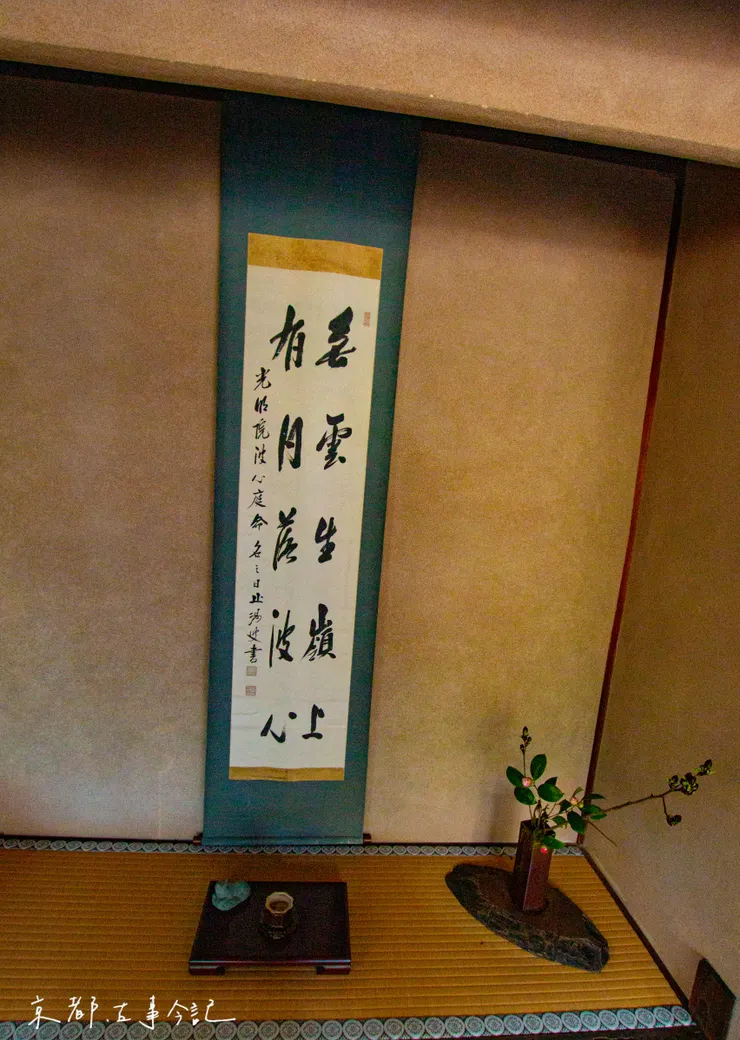 無雲生嶺上
有月落波心
光明院波心庭命名之日 書
京都.古事今記